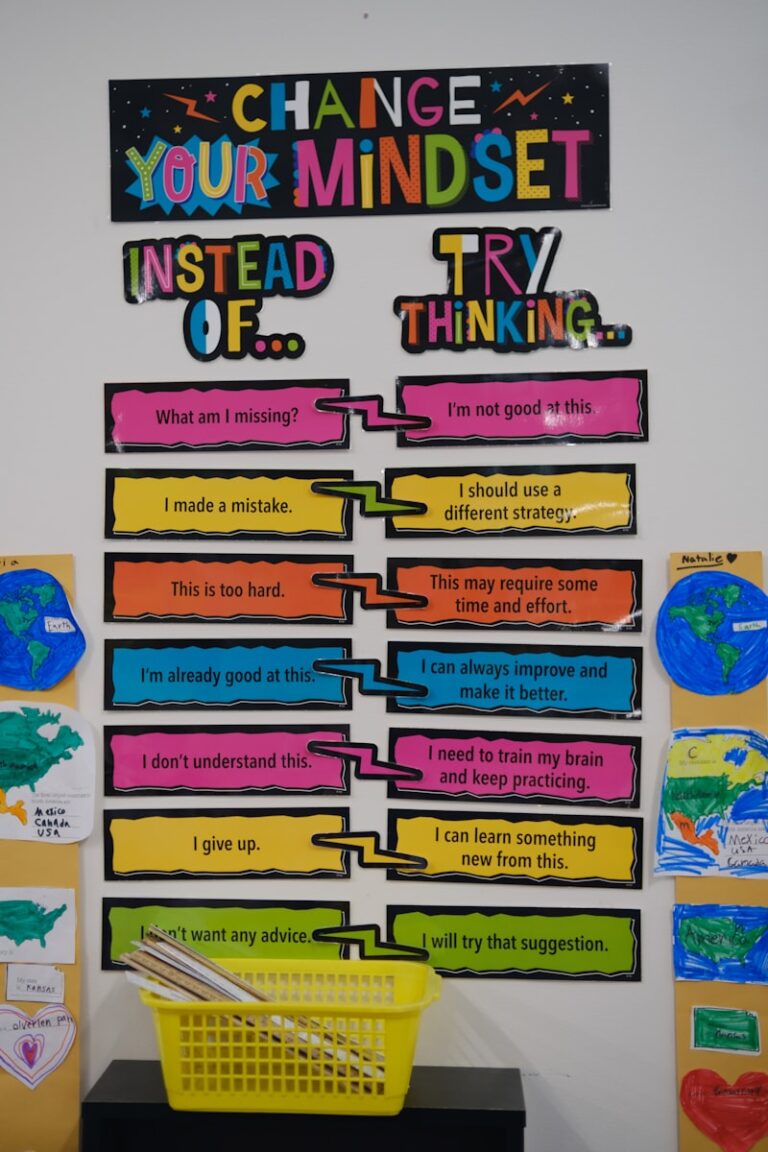 CHANGE
YOUR MINDSET
INSTEAD
OF...
TRY
THINKING...
What am I missing?
I'm not good at this.
I made a mistake.
I should use a
different strategy.
This is too hard.
This may require some
time and effort.
I'm already good at this.
I can always improve and
make it better.
I don't understand this.
I need to train my brain
and keep practicing.
I give up.
I can learn something
new from this.
I don't want any advice.
I will try that suggestion.
Earth
Mexico
Canada
USA
Kansas
Natalie
Earth
C
Mexico
USA
Canada
America